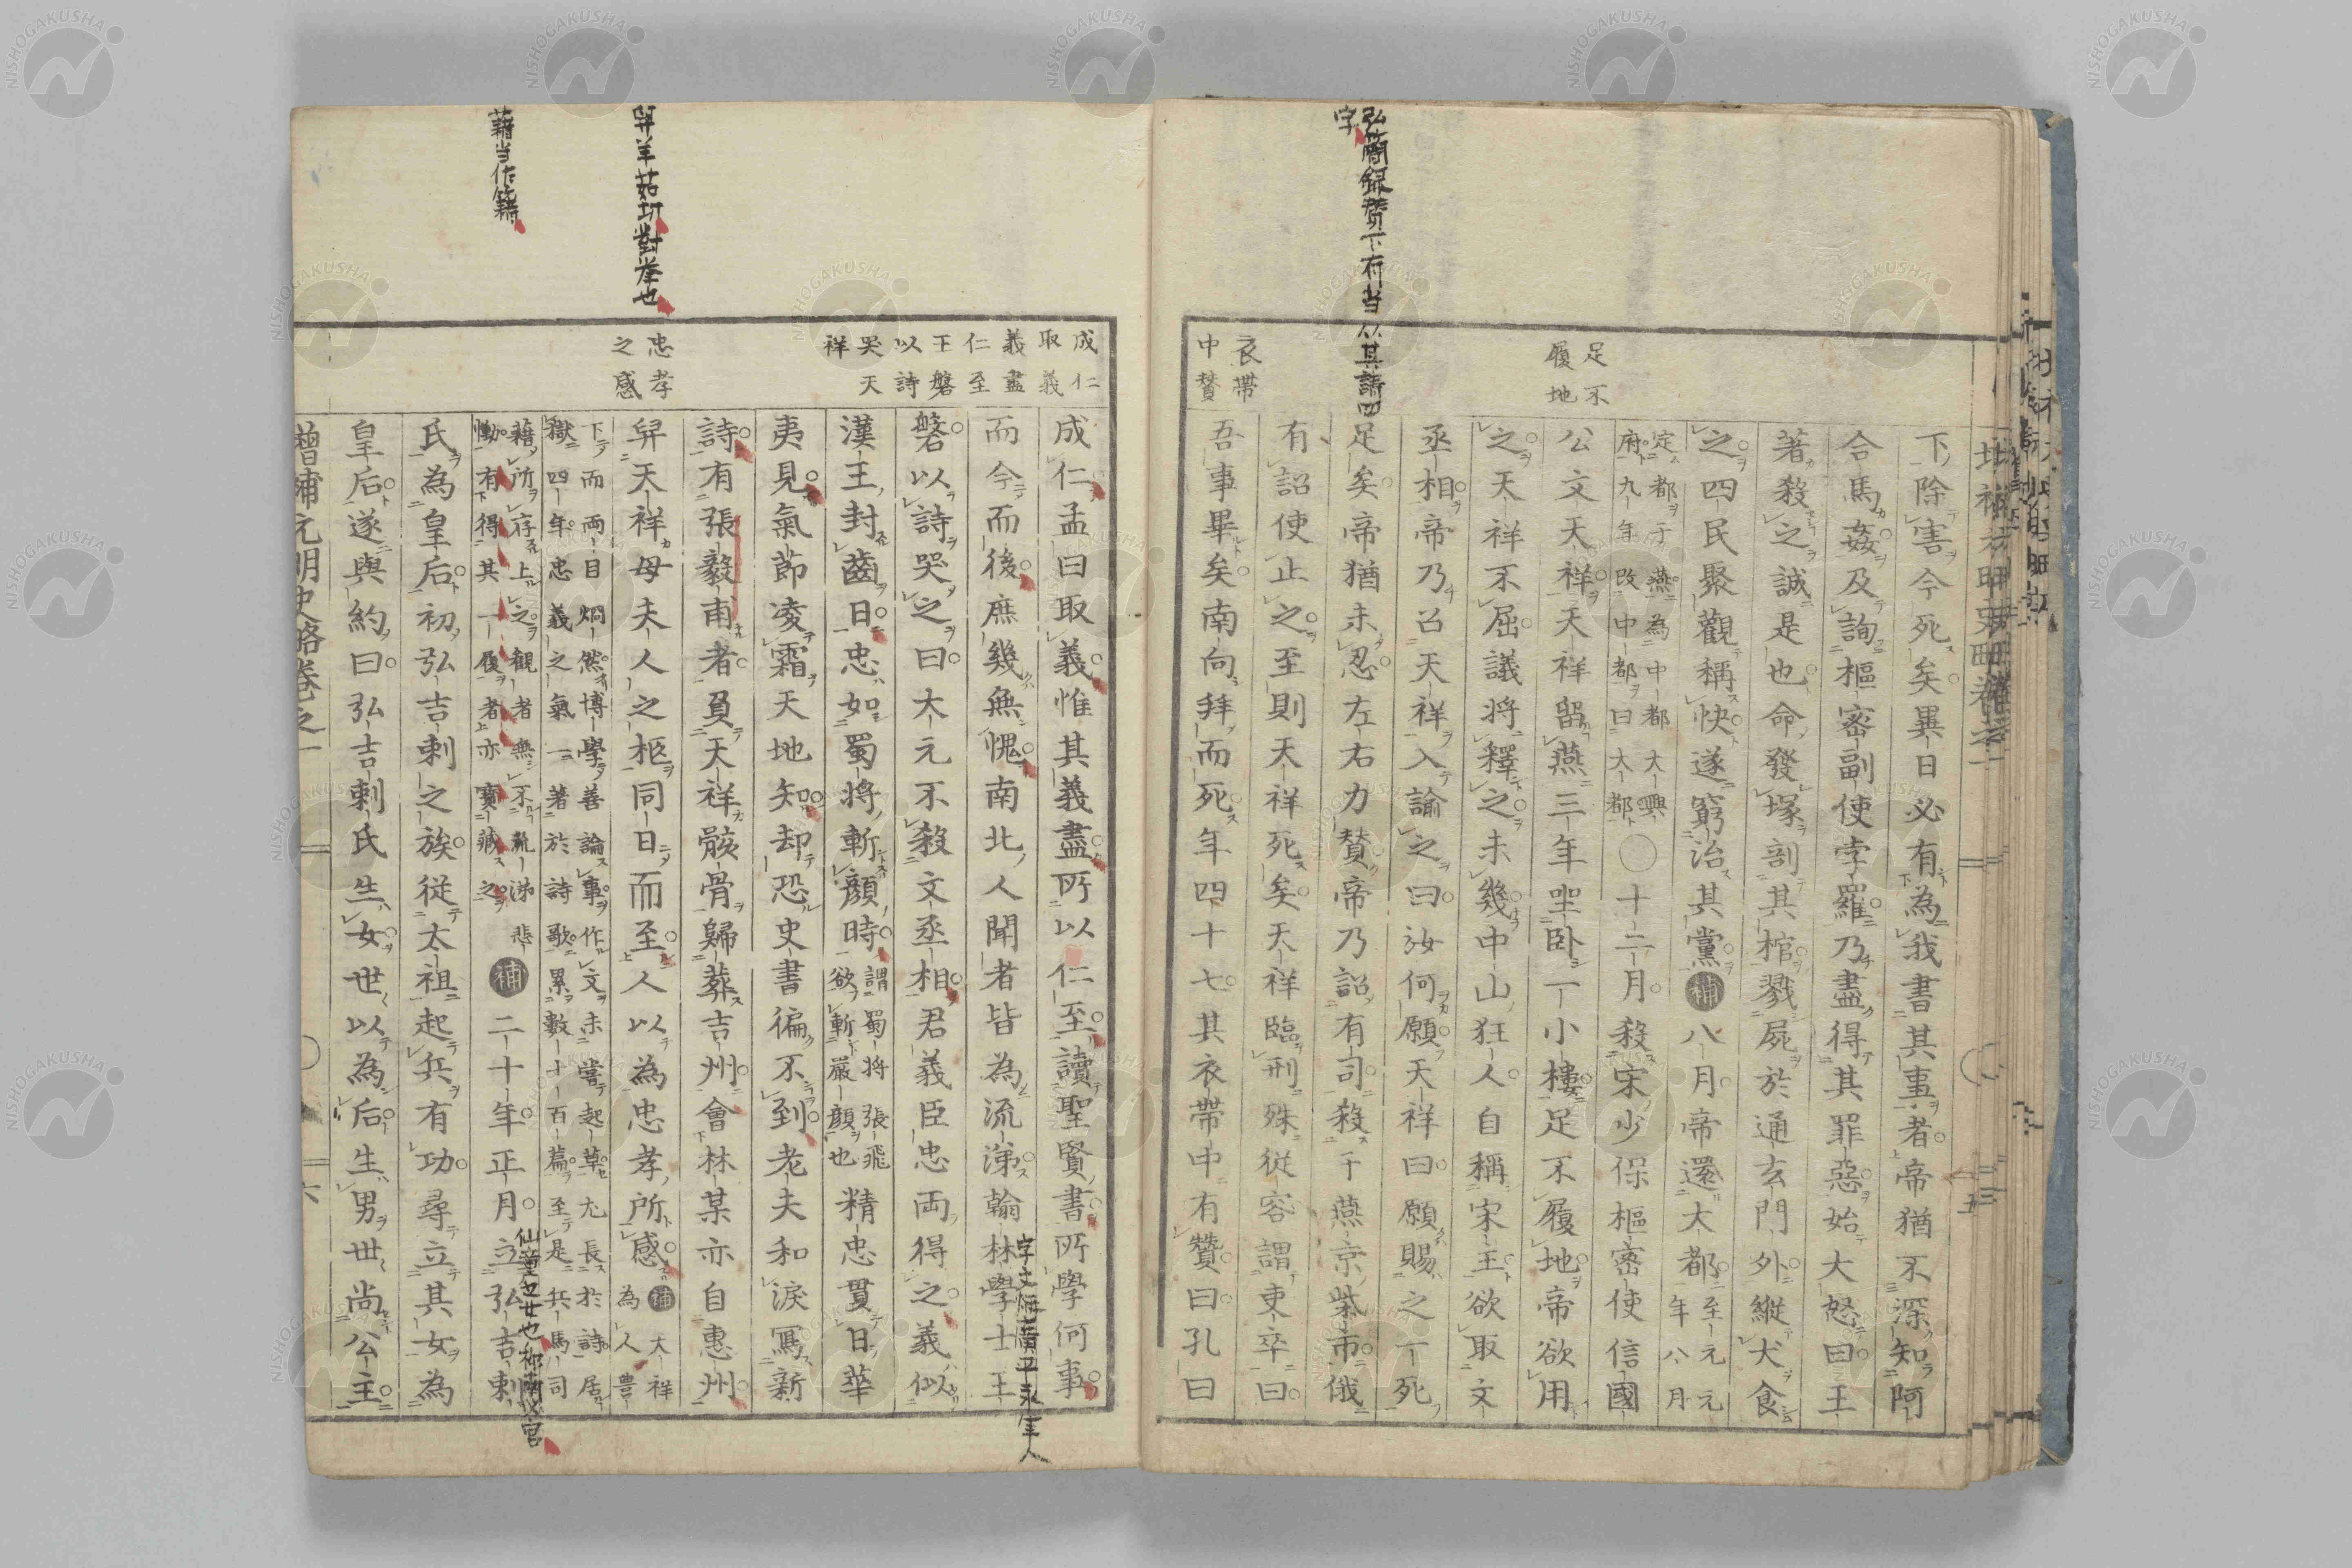 弘簡録賛下有当以其請四
字
足不
履地
衣帯
中賛
下除害今死矣異日必有為我書其事者帝猶不深知阿
合馬姦及詢樞密副使孛羅乃盡得其罪惡始大怒曰王
著殺之誠是也命發塚剖其棺戮屍於通玄門外縦犬食
之四民聚觀稱快遂窮治其黨補八月帝還大都至元元
年八月
定都于燕為中都大興
府九年改中都曰大都〇十二月殺宋少保樞密使信國
公文天祥天祥留燕三年坐卧一小樓足不履地帝欲用
之天祥不屈議將釋之未幾中山狂人自稱宋主欲取文
丞相帝乃召天祥入諭之曰汝何願天祥曰願賜之一死
足矣帝猶未忍左右力賛帝乃詔有司殺于燕京柴市俄
有詔使止之至則天祥死矣天祥臨刑殊従容謂吏卒曰
吾事畢矣南向拜而死年四十七其衣帯中有贊曰孔曰
舁羊茹切對挙也
藉当作籍
成仁
取義
義盡
仁至
王磐
以詩
哭天
祥
忠孝
之感
成仁孟曰取義惟其義盡所以仁至讀聖賢書所學何事
而今而後庶幾無愧南北人聞者皆為流涕翰林學士王
磐以詩哭之曰大元不殺文丞相君義臣忠両得之義似
漢王封齒日忠如蜀將斬顔時謂蜀将張飛
欲斬嚴顔也精忠貫日華
夷見氣節凌霜天地知却恐史書徧不到老夫和淚寫新
詩有張毅甫者負天祥骸骨歸葬吉州會林某亦自惠州
舁天祥母夫人之柩同日而至人以為忠孝所感補大祥
為人豊
下而両目炯然博學善論事作文未嘗起草尤長於詩居
獄四年忠義之氣一著於詩歌累數十百篇至是兵馬司
藉所存上之觀者無不流涕悲
慟有得其一履者亦寳蔵之補二十年正月立弘吉剌
氏為皇后初弘吉剌之族従太祖起兵有功尋立其女為
皇后遂與約曰弘吉剌氏生女世以為后生男世尚公主
増補元明史略巻之一
六